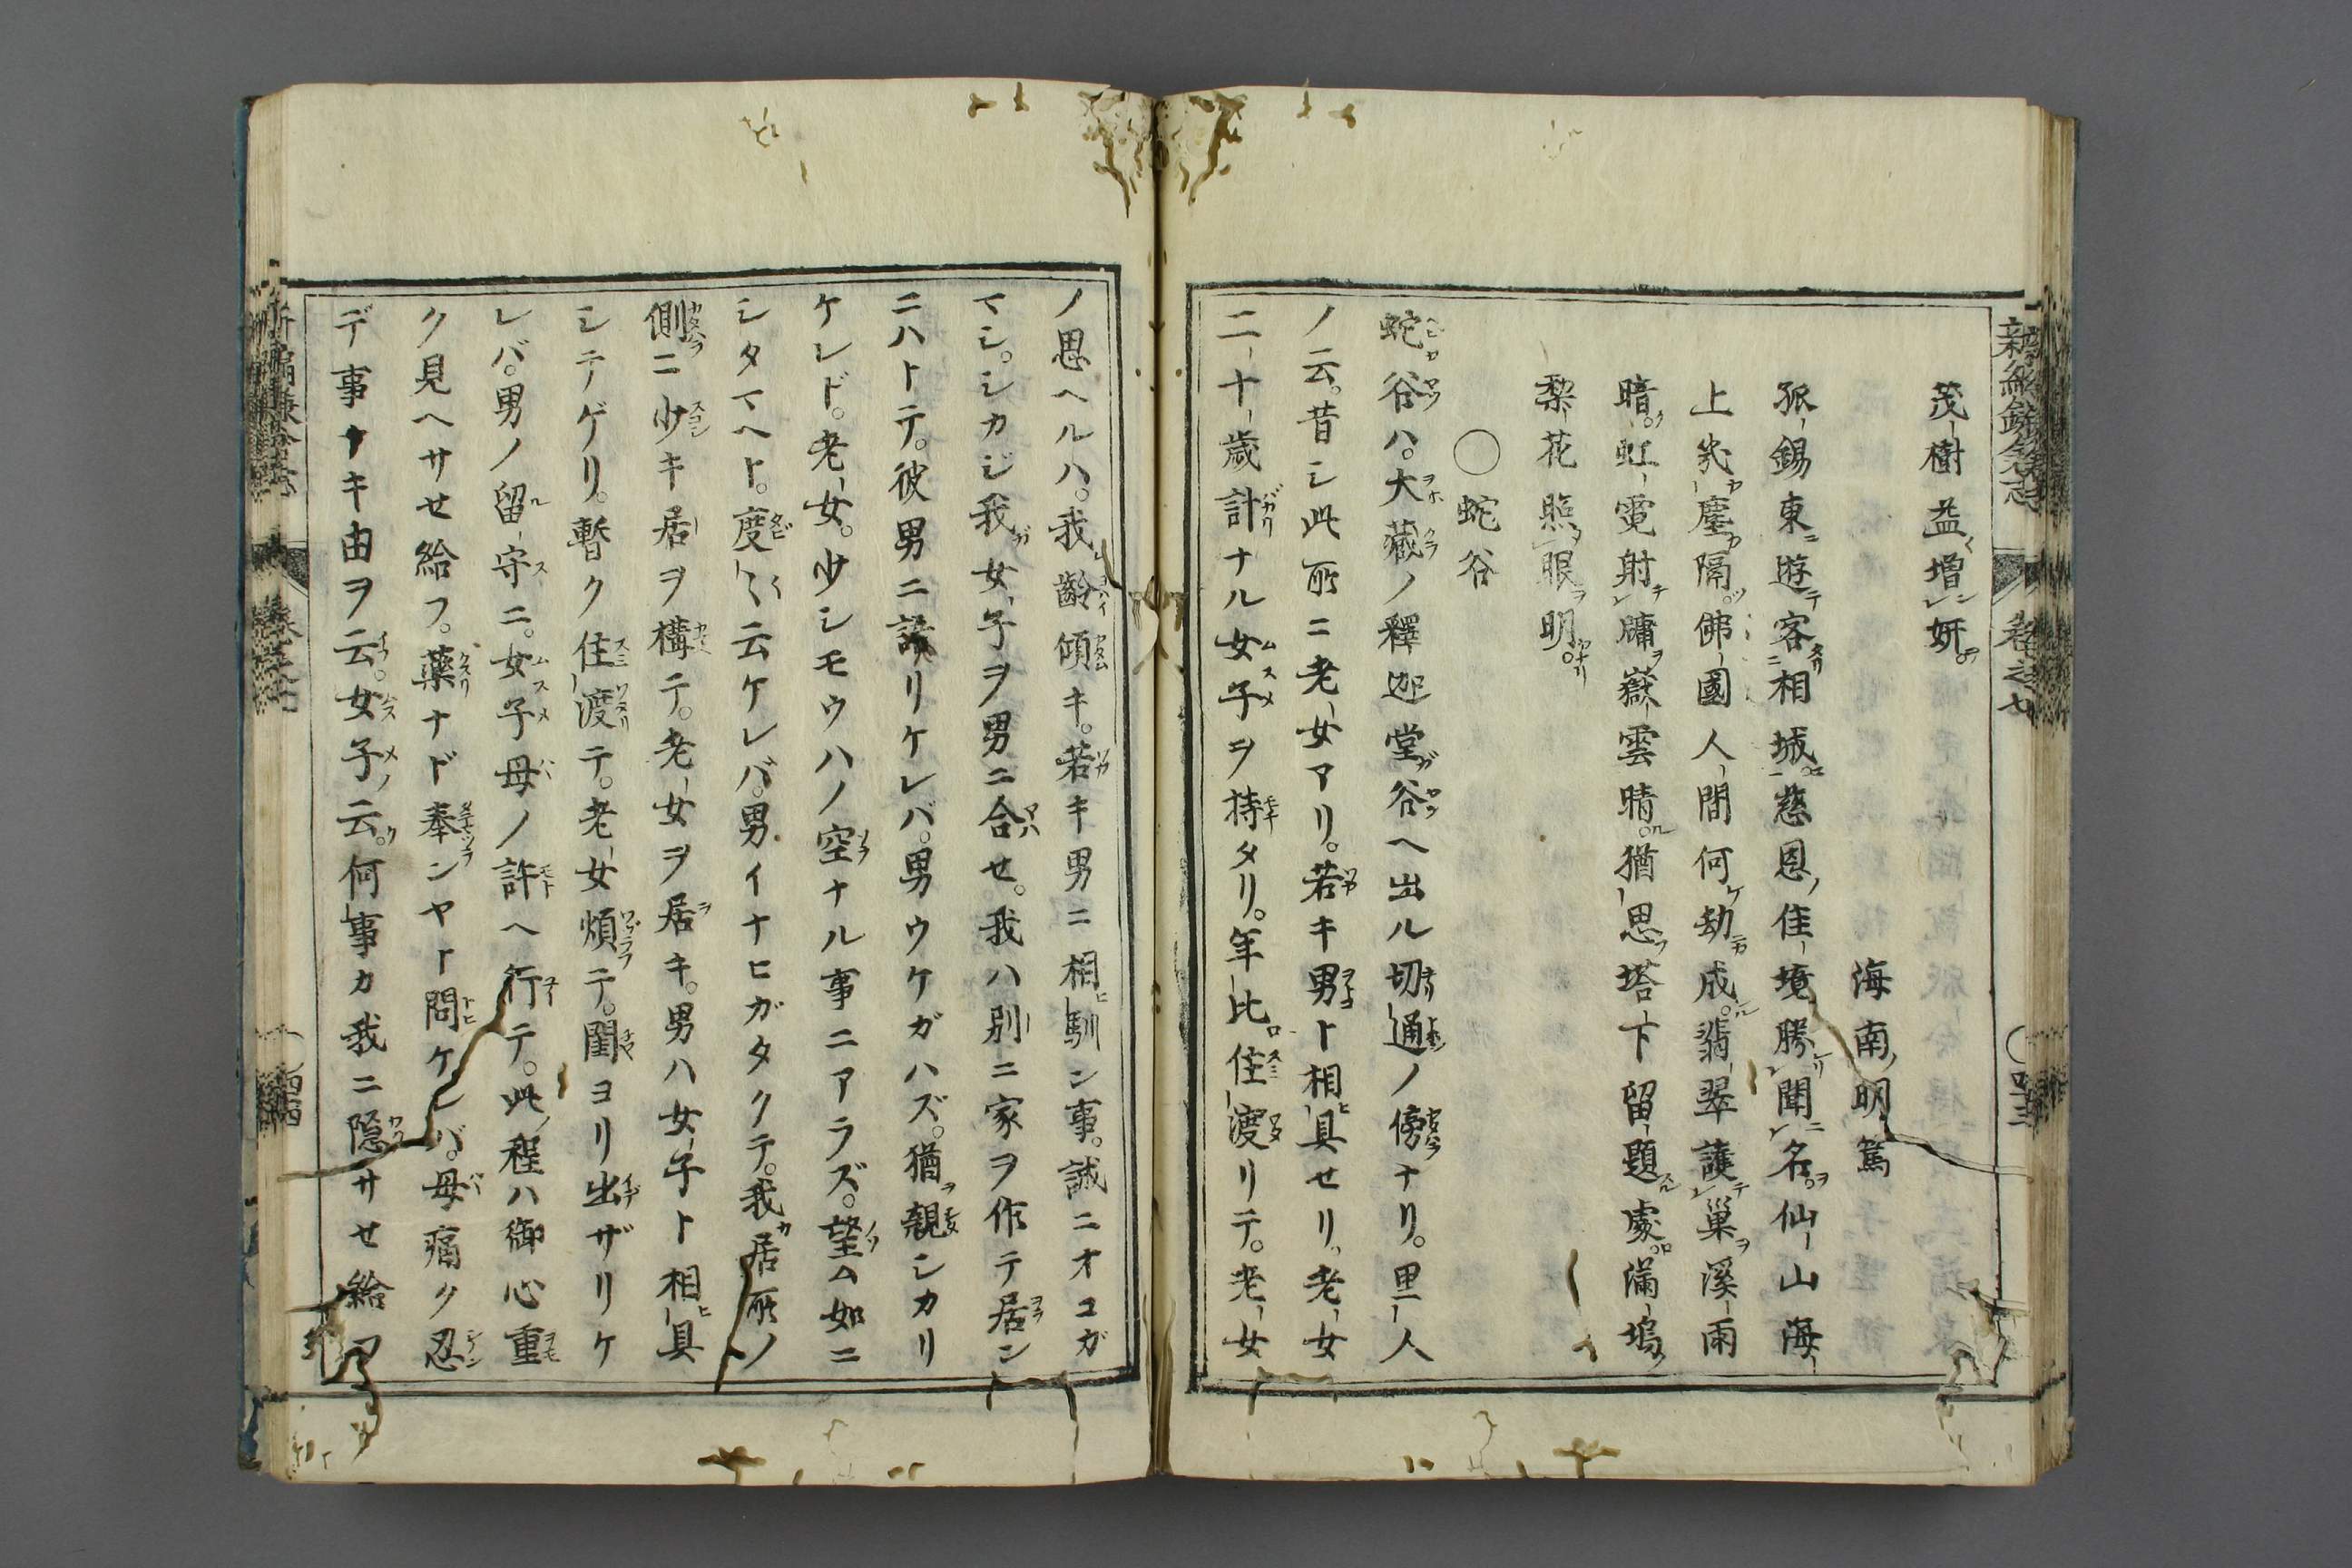 茂樹益増妍
海南明篤
孤錫東遊客相城慈恩佳境勝聞名仙山海
上幾塵隔佛國人間何劫成翡翠護巣溪雨
暗虹霓射牗嶽雲晴猶思塔下留題處滿塢
梨花照眼明
○蛇谷
蛇谷ハ。大藏ノ釋迦堂谷ヘ出ル切通ノ傍ナリ。里人
ノ云。昔シ此所ニ老女アリ。若キ男ト相具セリ。老女
二十歳計ナル女子ヲ持タリ。年比住渡リテ。老女
ノ思ヘルハ。我齡傾キ。若キ男ニ相馴ン事。誠ニオコガ
マシ。シカジ我女子ヲ男ニ合せ。我ハ別ニ家ヲ作テ居ン
ニハトテ。彼男ニ語リケレバ。男ウケガハズ。猶親シカリ
ケレド。老女。少シモウハノ空ナル事ニアラズ。望ム如ニ
シタマヘト。度々云ケレバ。男イナヒガタクテ。我居所ノ
側ニ少キ居ヲ構テ。老女ヲ居キ。男ハ女子ト相具
シテゲリ。暫ク住渡テ。老女煩テ。閨ヨリ出ザリケ
レバ。男ノ留守ニ。女子母ノ許ヘ行テ。此程ハ御心重
ク見ヘサせ給フ。藥ナド奉ンヤト問ケレバ。母痛ク忍
デ事ナキ由ヲ云。女子云。何事カ我ニ隠サせ給フ
新編鎌倉志 卷之七